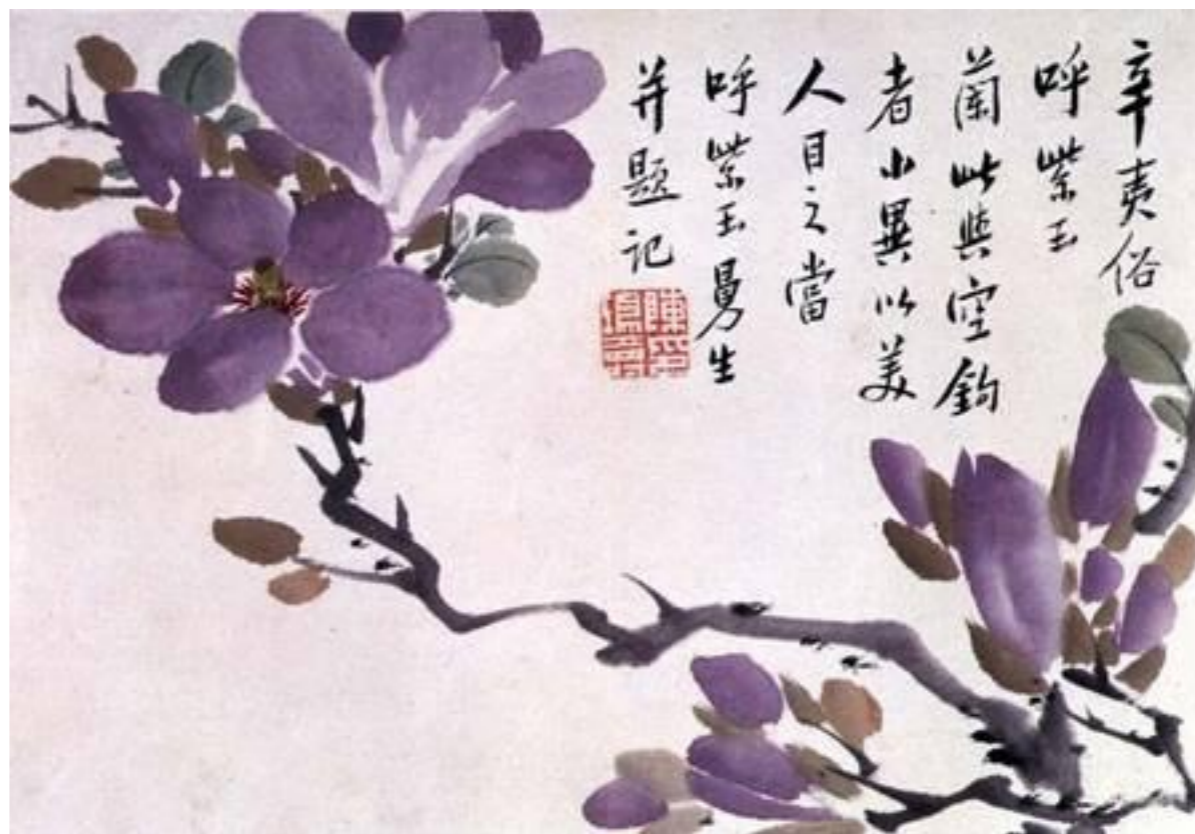 辛夷俗
呼紫玉
蘭此與空鉤
者小異以美
人目之當
呼紫玉曼生
并題記
陳印
鴻壽